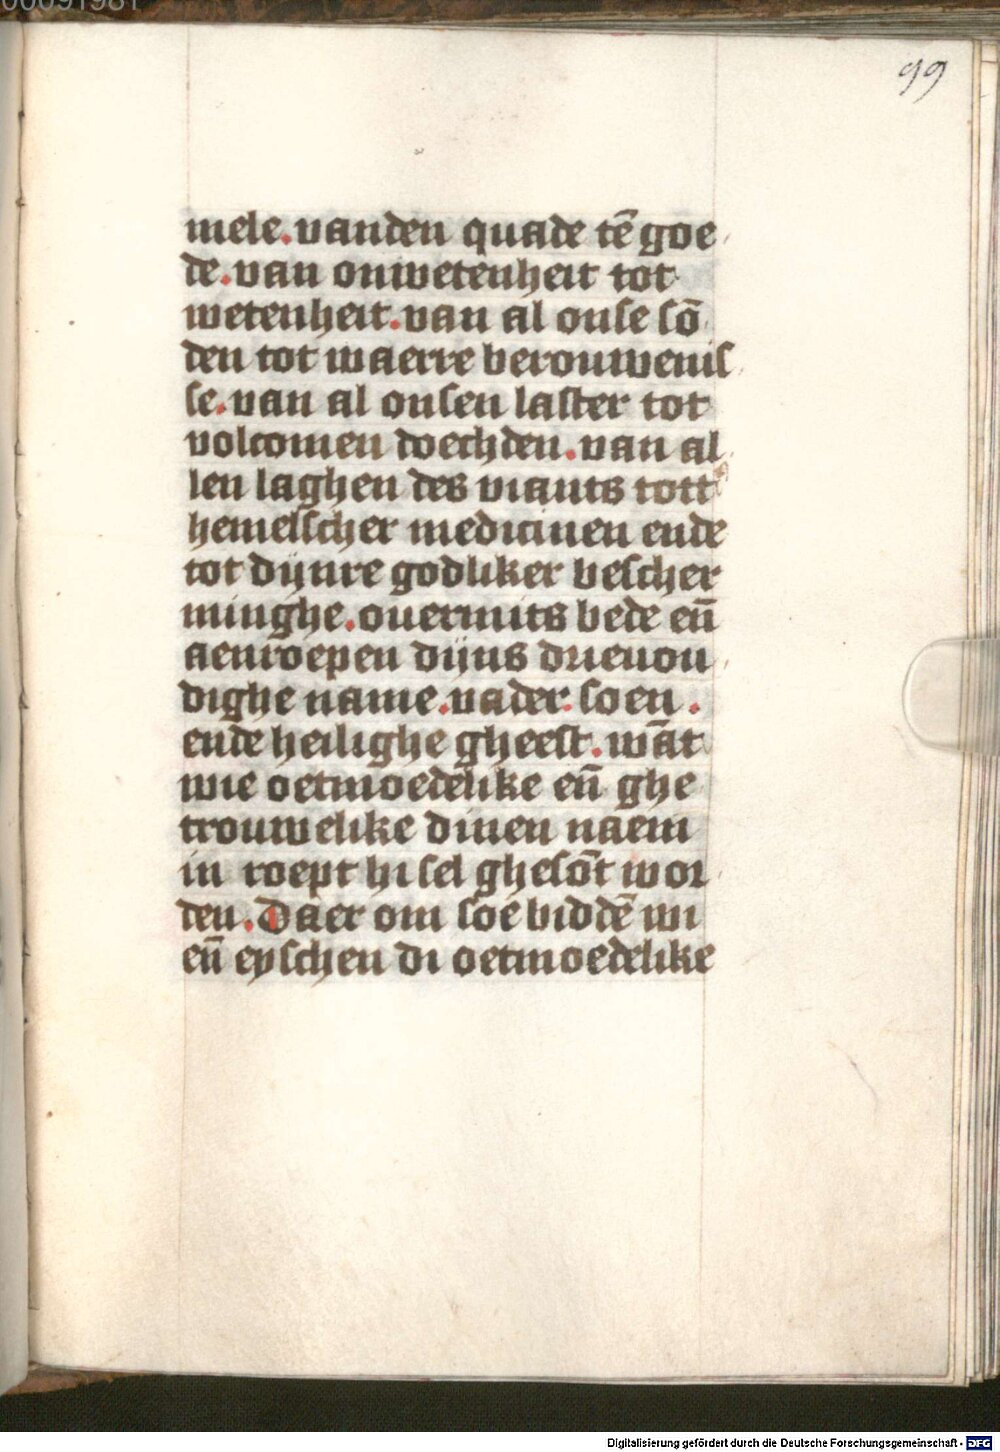 00091981
99
mele.vanden quade tē goe
de.van onwetenheit tot
wetenheit.van al onse sō
den tot waerre berouwenis
se.van al onsen laster tot
volcomen doechden.van al
len laghen des viants tott
hemelscher medicinen ende
tot dijnre godliker bescher
minghe.ouermits bede en̄
aenroepen dijns drieuou
dighe name.vader.soen.
ende heilighe gheest.wāt
wie oetmoedelike en̄ ghe
trouwelike dinen naem
in roept hi sel ghesōt wor
den.Daer om soe biddē wi
en̄ eyschen di oetmoedelike
Digitalisierung gefördert durch die Deutsche Forschungsgemeinschaft - DFG